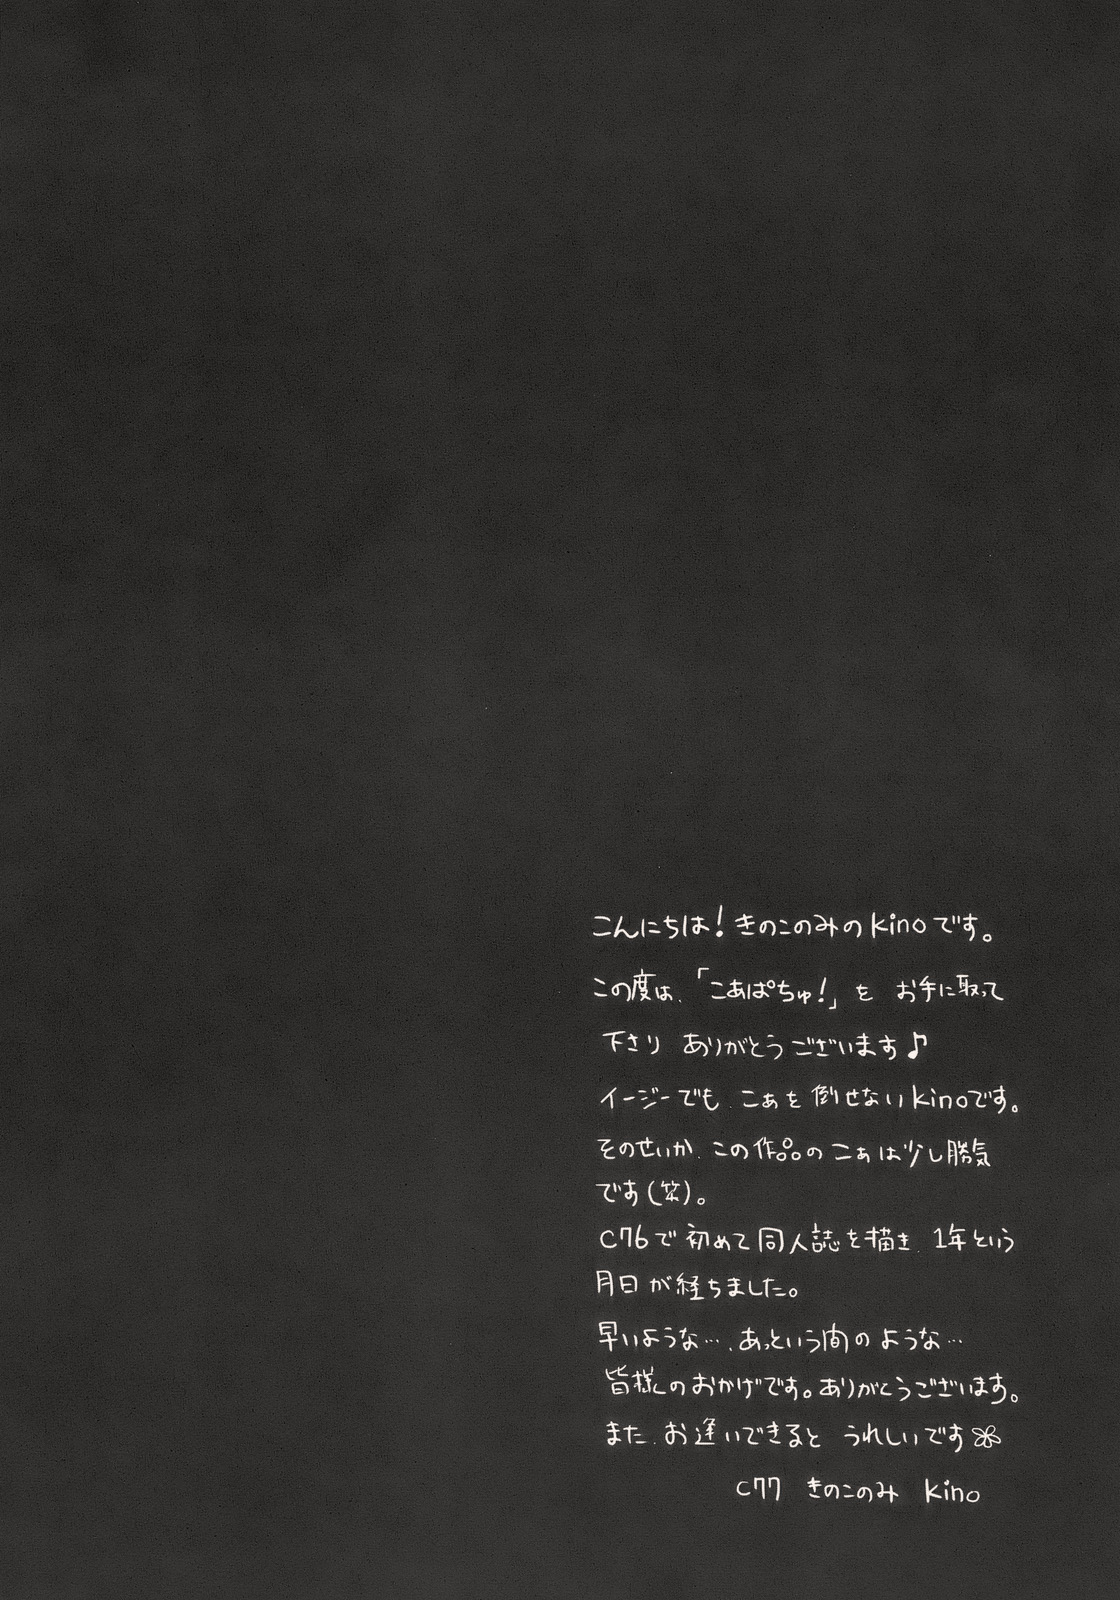 こんにちは！きのこのみのkinoです。
この度は、「こあぱちゅ！」を お手に取って
下さり ありがとうございます♪
イージーでも、こぁを倒せないkinoです。
そのせいか、この作品のこぁは少し勝気
です(笑)。
C76で初めて同人誌を描き、1年という
月日が経ちました。
早いような…、あっという間のような…
皆様のおかげです。ありがとうございます。
また、お逢いできると うれしいです
C77 きのこのみ kino